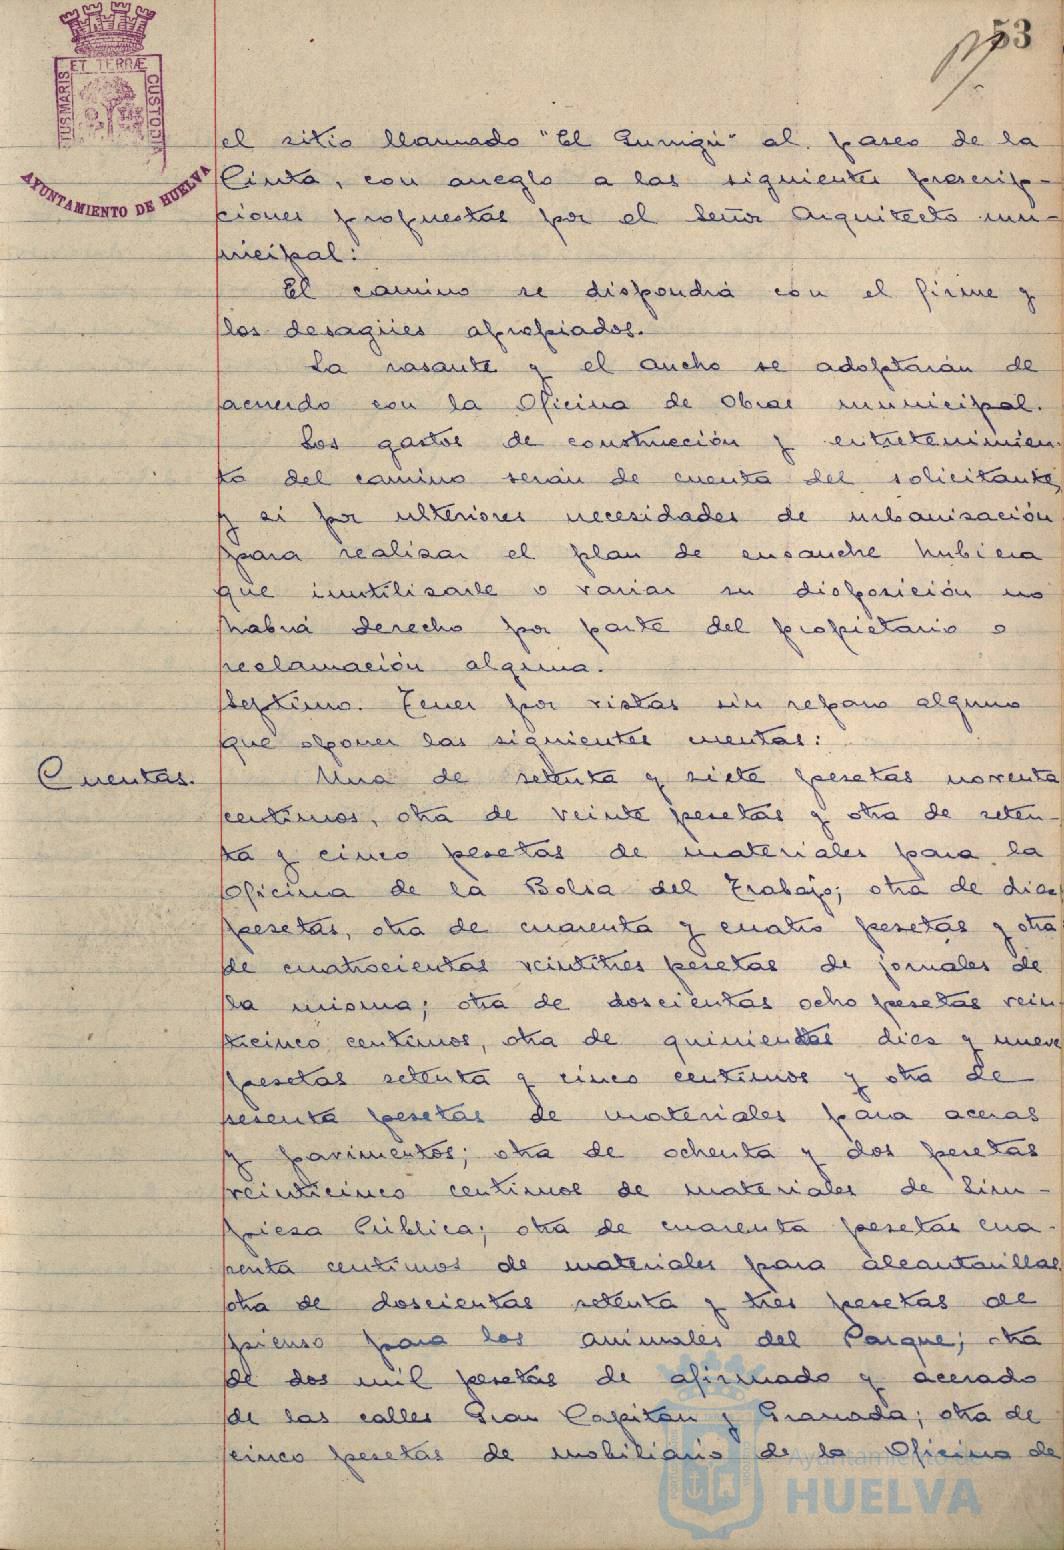 53
ET TERRÆ
IUS MARIS
CUSTODIA
AYUNTAMIENTO DE HUELVA
el sitio llamado "El Gurugú" al paseo de la
Cinta, con arreglo a las siguientes prescrip-
ciones propuestas por el Señor Arquitecto mu-
nicipal:
El camino se dispondrá con el firme y
los desagües apropiados.
La rasante y el ancho se adoptarán de
acuerdo con la Oficina de Obras municipal.
Los gastos de construcción y entretenimien-
to del camino serán de cuenta del solicitante,
y si por ulteriores necesidades de urbanización
para realizar el plan de ensanche hubiera
que inutilizarle o variar su disposición no
habrá derecho por parte del propietario o
reclamación alguna.
Septimo. Tener por vistas sin reparo alguno
que oponer las siguientes cuentas:
Cuentas.
Una de setenta y siete pesetas noventa
centimos, otra de veinte pesetas y otra de seten-
ta y cinco pesetas de materiales para la
Oficina de la Bolsa del Trabajo; otra de diez
pesetas, otra de cuarenta y cuatro pesetas y otra
de cuatrocientas veintitres pesetas de jornales de
la misma; otra de doscientas ocho pesetas vein-
ticinco centimos, otra de quinientas diez y nueve
pesetas setenta y cinco centimos y otra de
sesenta pesetas de materiales para aceras
y pavimentos; otra de ochenta y dos pesetas
veinticinco centimos de materiales de Lim-
pieza Pública; otra de cuarenta pesetas cua-
renta centimos de materiales para alcantarillas
otra de doscientas setenta y tres pesetas de
pienso para los animales del Parque; otra
de dos mil pesetas de afirmado y acerado
de las calles Gran Capitan y Granada; otra de
cinco pesetas de mobiliario de la Oficina de
Ayuntamiento de
HUELVA